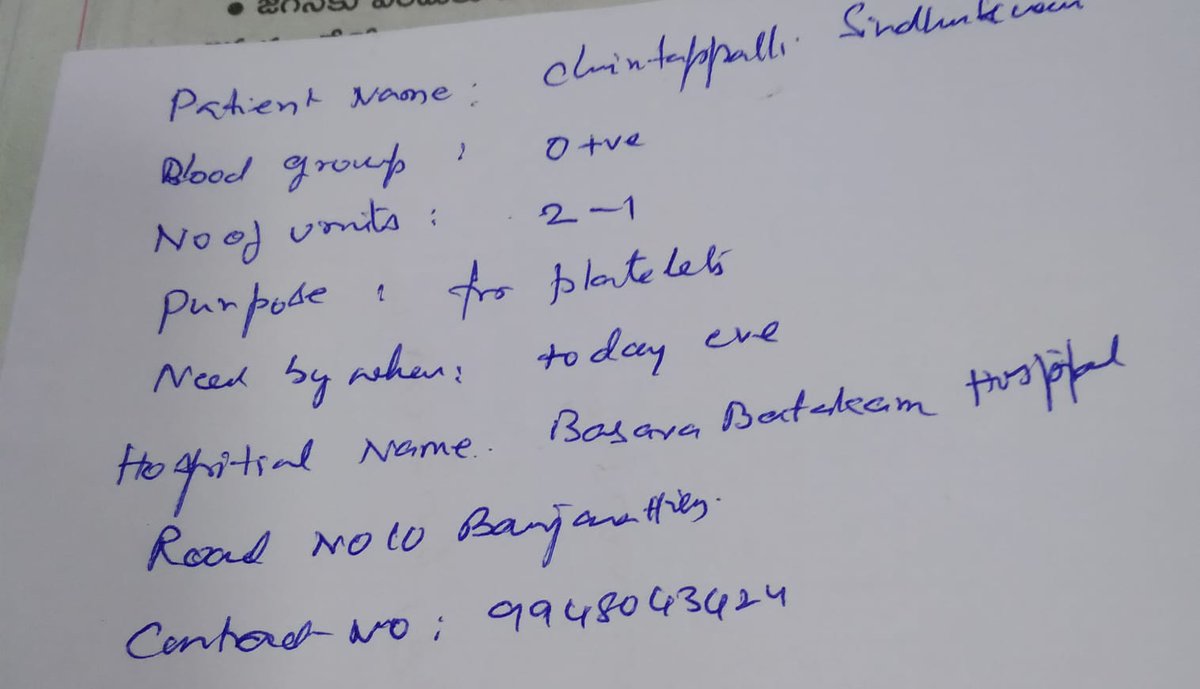 • జగనకు
Patient Name: Chintappalli. Sindhu
Blood group : O +ve
No of units : 2-1
Purpose : for platelets
Need by when: today eve
Hospitial Name. Basara Batakam Hospital
Road NO 10 Banjara Hills.
Contact NO : 9948043424